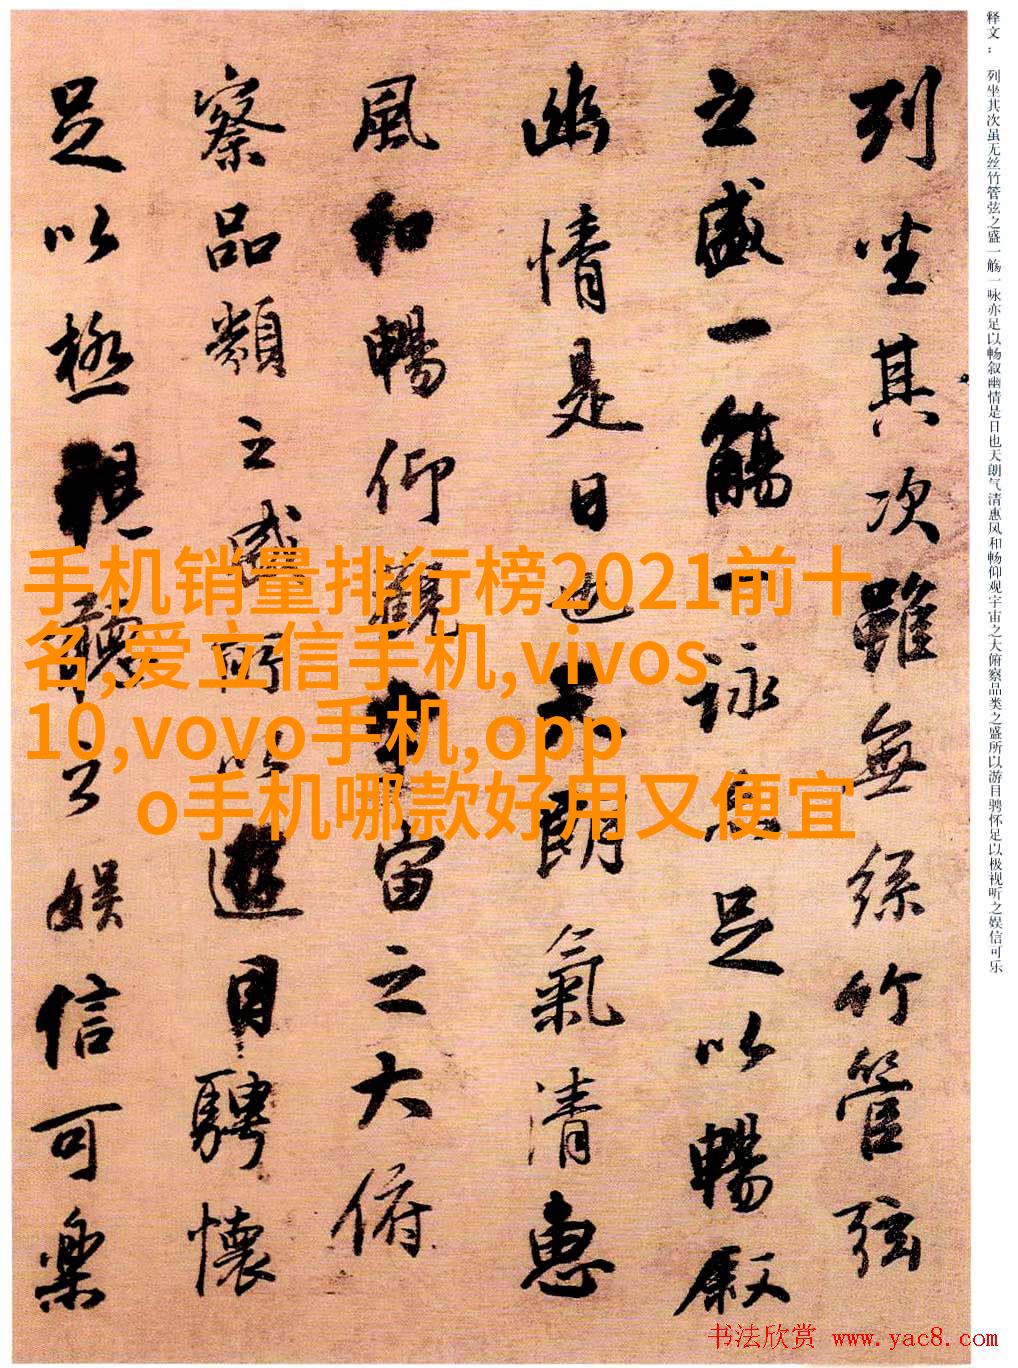 释文： 列坐其次虽无丝竹管弦之盛一觞一咏亦足以畅叙幽情是日也天朗气清惠风和畅仰观宇宙之大俯察品类之盛所以游目骋怀足以极视听之娱信可乐
列坐其次雖無絲竹管弦
之盛一觴一詠亦足以暢叙
幽情是日也天朗氣清惠
風和暢仰觀宇宙之大俯
察品類之盛所以遊目騁懷
足以極視聽之娛信可樂
手机销量排行榜2021前十
名,爱立信手机,vivos
10,vovo手机,opp
o手机哪款好用又便宜
书法欣赏 www.yac8.com